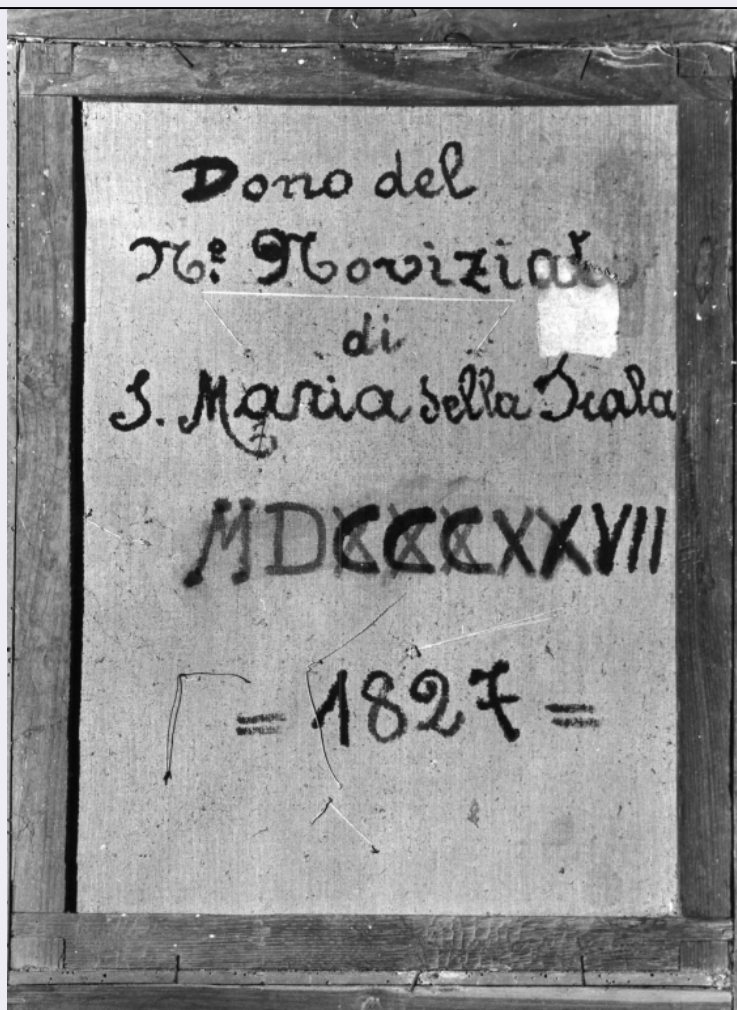 Dono del
N.º Noviziato
di
S. Maria della Scala
MDCCCXXVII
= 1827 =